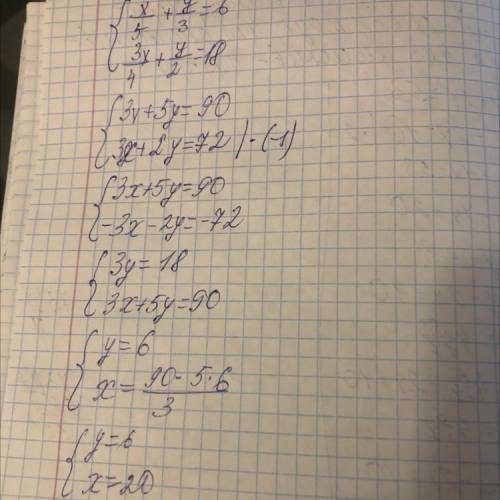 x/5 + y/3 = 6
3x/4 + y/2 = 18
3y+5y=90
3x+2y=72 | · (-1)
3x+5y=90
-3x-2y=-72
3y=18
3x+5y=90
y=6
x= 90-5·6/3
y=6
x=20